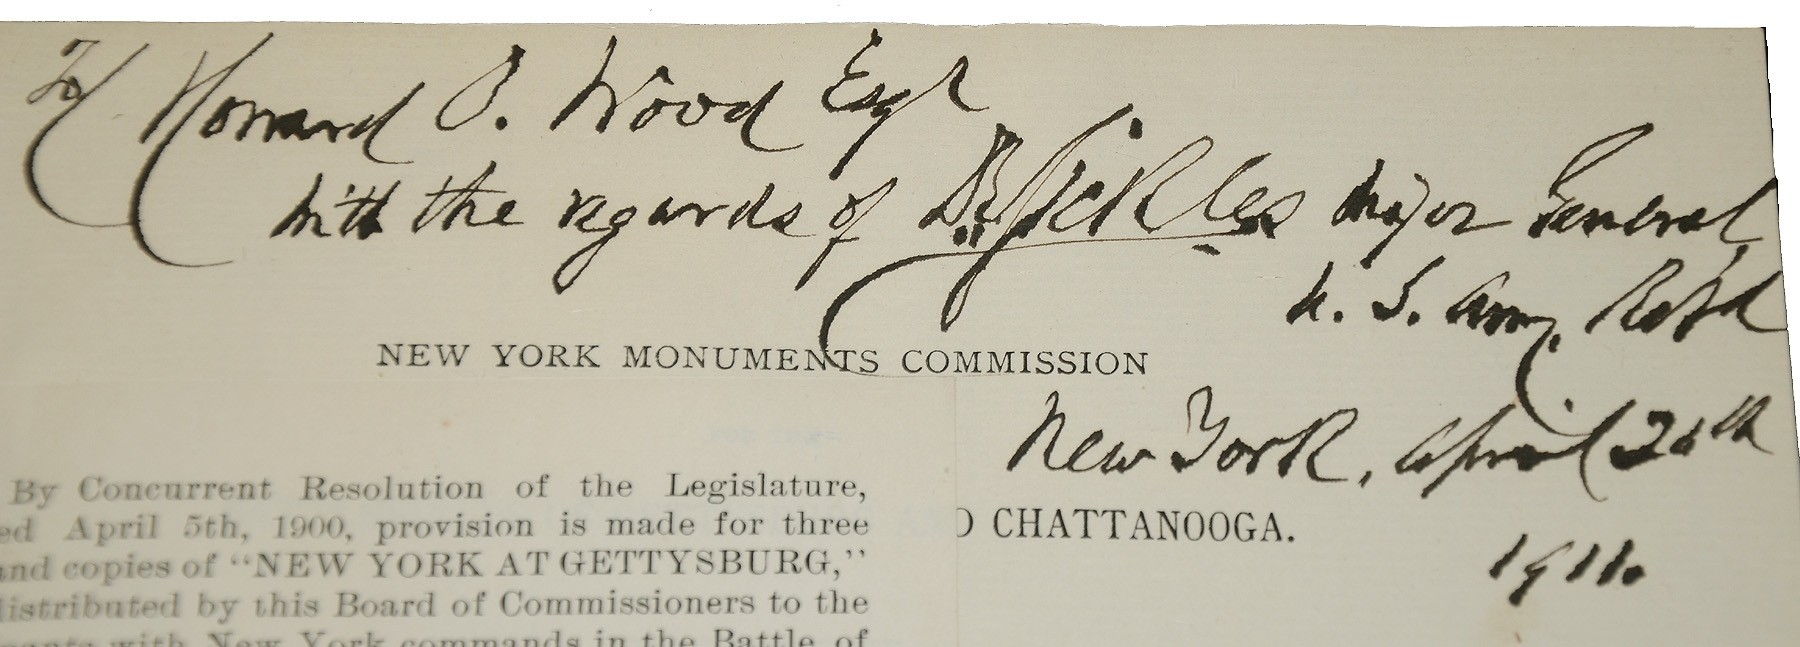 To Howard O. Wood Esqr
with the regards of D. Sickles Major General,
U. S. Army, Ret'd
NEW YORK MONUMENTS COMMISSION
New York, April 26th
1911.
D CHATTANOOGA.
By Concurrent Resolution of the Legislature,
ed April 5th, 1900, provision is made for three
and copies of “NEW YORK AT GETTYSBURG,”
distributed by this Board of Commissioners to the
with New York commands in the Battle of